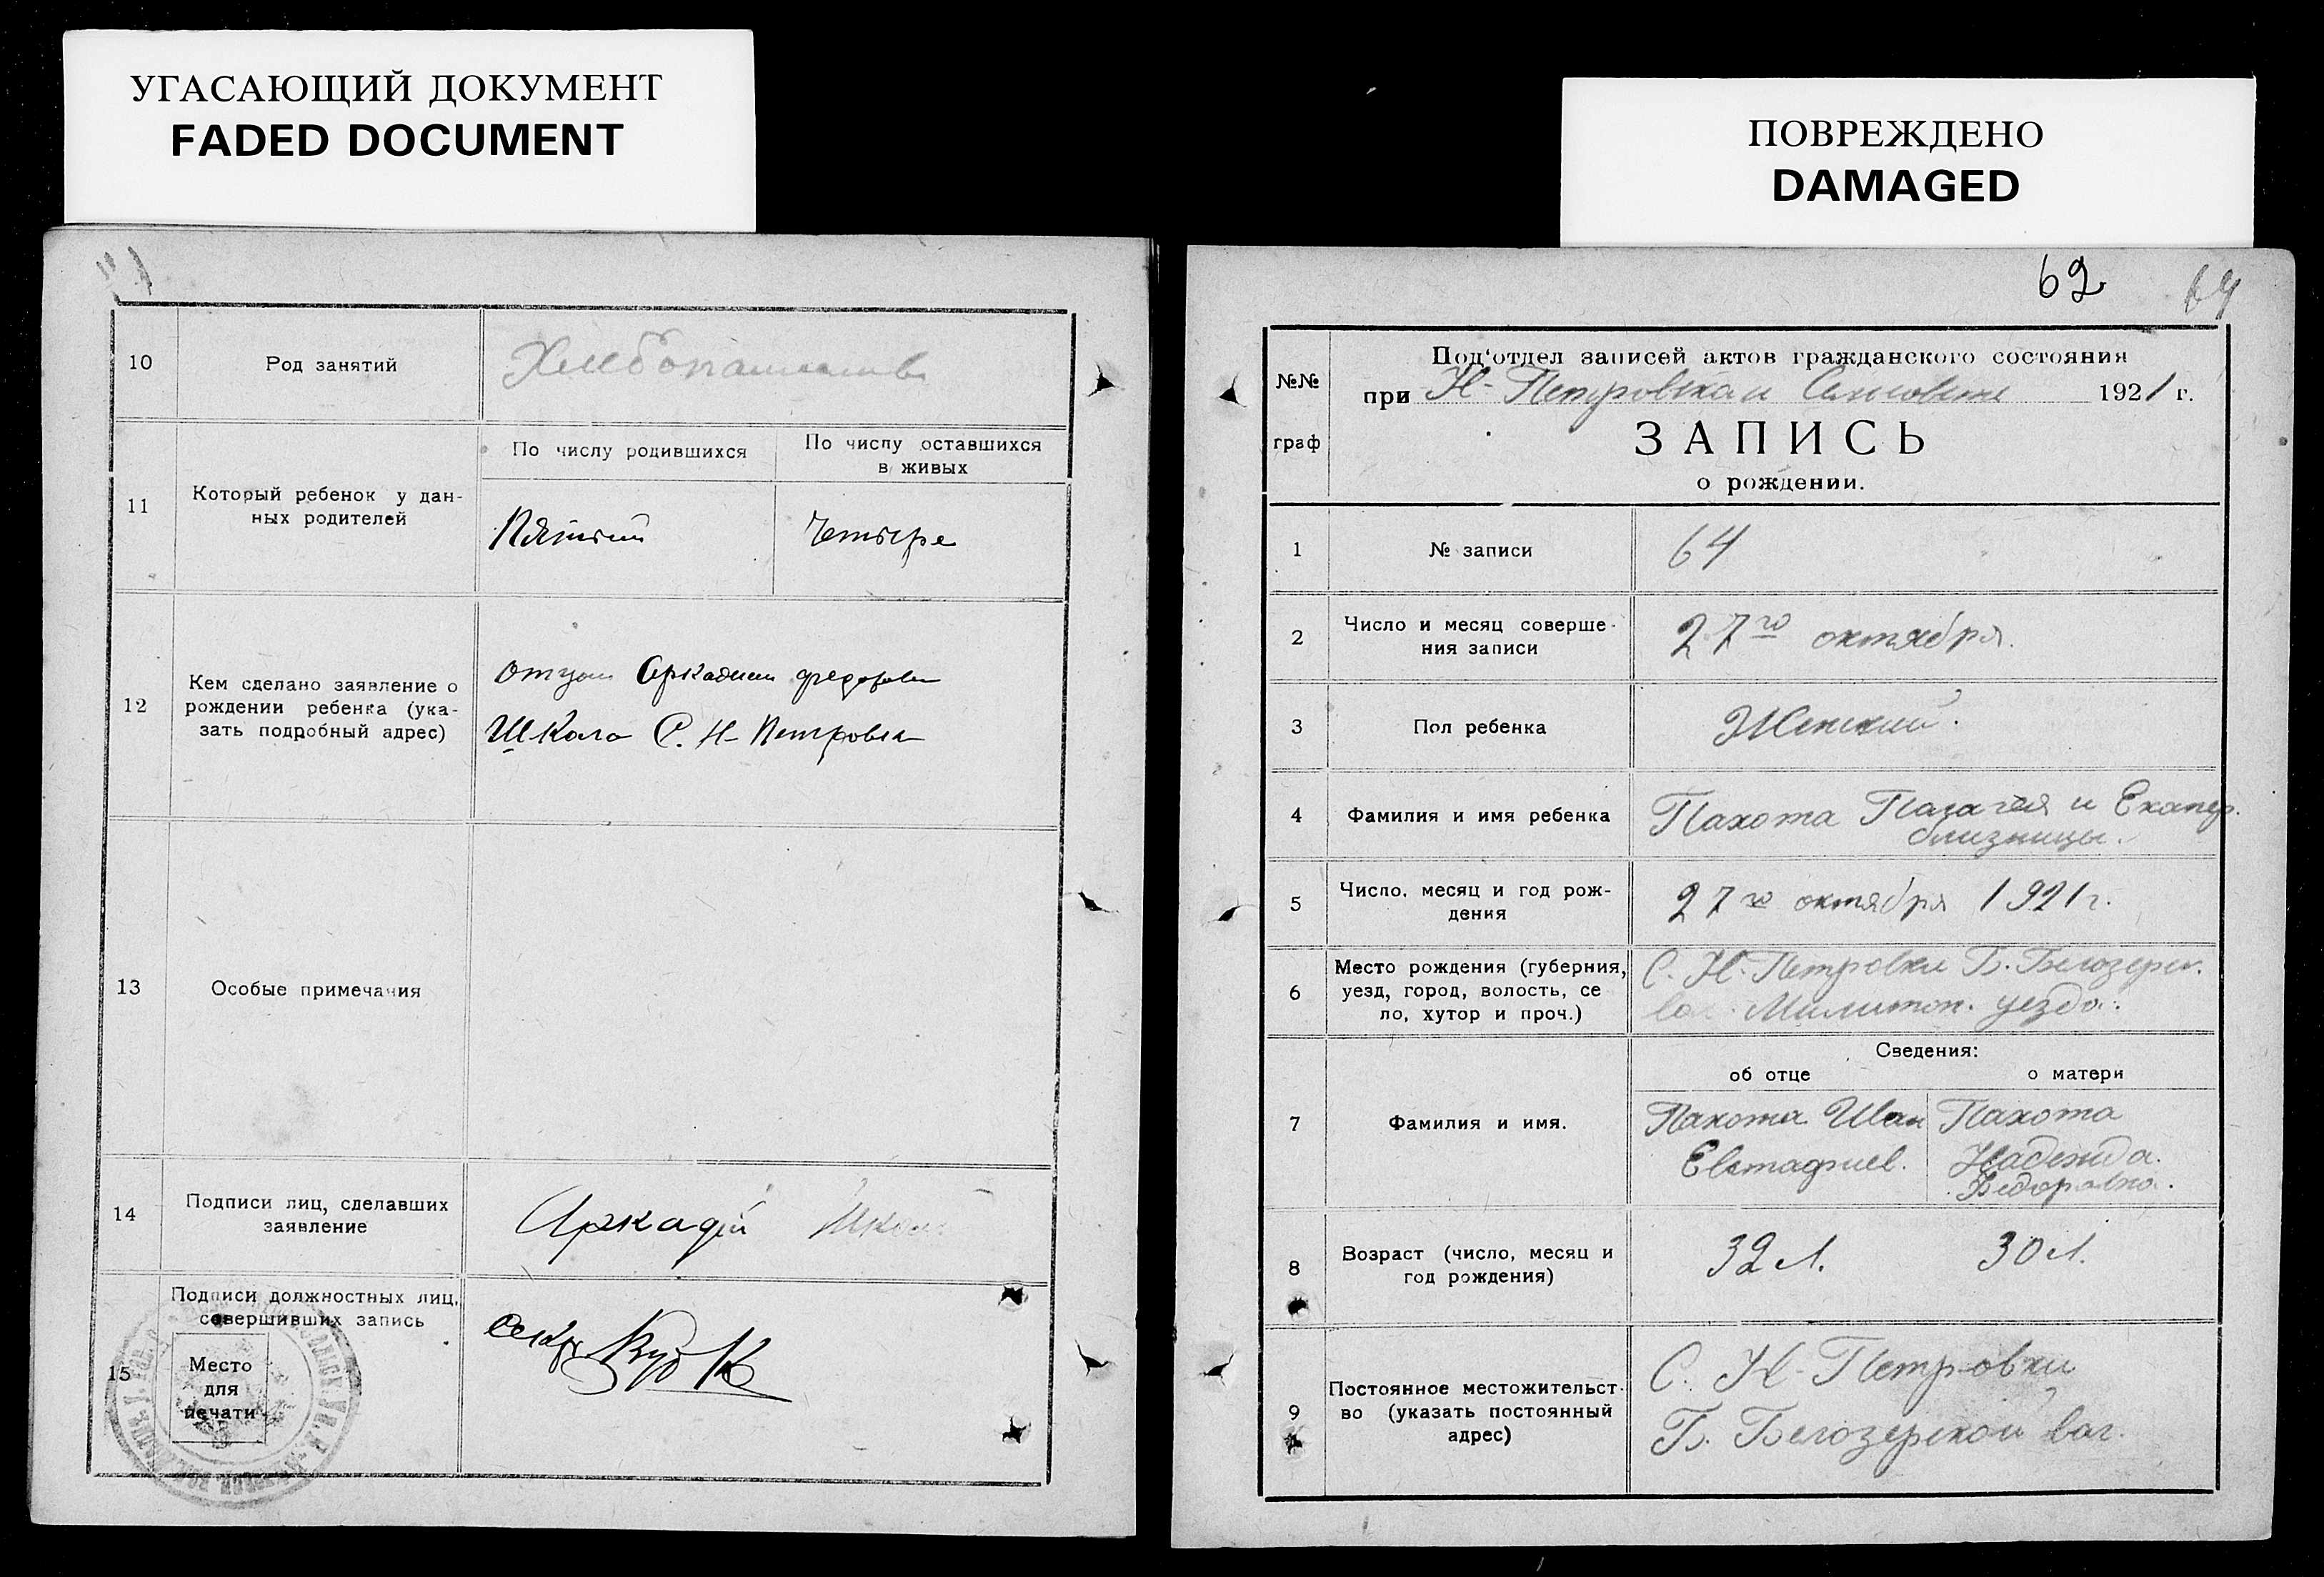 УГАСАЮЩИЙ ДОКУМЕНТ
FADED DOCUMENT
10
Род занятий
Хлебопашество
11
Который ребенок у дан-
ных родителей
По числу родившихся
По числу оставшихся
в живых
Пятый
Четыре
12
Кем сделано заявление о
рождении ребенка (ука-
зать подробный адрес)
отцом Аркадием Федоровом
Школа С. Н-Петровка
13
Особые примечания
14
Подписи лиц, сделавших
заявление
Аркадій
15
Подписи должностных лиц,
совершивших запись
Место
для
печати
ПОВРЕЖДЕНО
DAMAGED
62
64
№№
граф
Под'отдел записей актов гражданского состояния
при Н-Петровском 1921 г.
ЗАПИСЬ
о рождении.
1
№ записи
64
2
Число и месяц соверше-
ния записи
27го октября.
3
Пол ребенка
Женский.
4
Фамилия и имя ребенка
Пахота Палагея и Екатер.
близницы.
5
Число, месяц и год рож-
дения
27го октября 1921 г.
6
Место рождения (губерния,
уезд, город, волость, се
ло, хутор и проч.)
С. Н-Петровки Б. Белозерск.
вол. Милитоп. уезда.
Сведения:
об отце
о матери
7
Фамилия и имя.
Пахота Иван
Евстафиев.
Пахота
Надежда
Федоровна.
8
Возраст (число, месяц и
год рождения)
32 л.
30 л.
9
Постоянное местожительст-
во (указать постоянный
адрес)
С. Н-Петровки
Б. Белозерской вол.